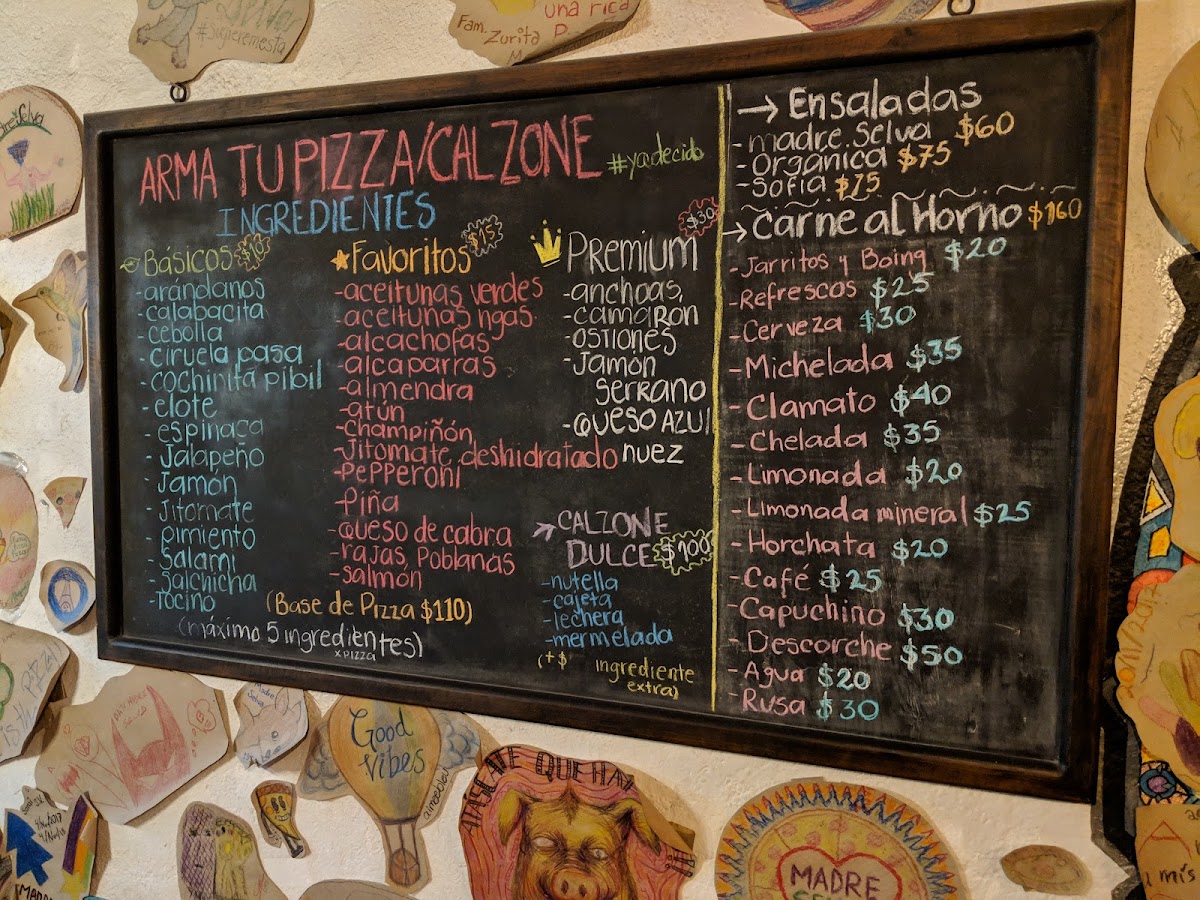 #sigieremesta
una rica
Fam.
Zurita
ARMA TU PIZZA/CALZONE #yadecido
INGREDIENTES
Básicos $10
-arándanos
-calabacita
-cebolla
-ciruela pasa
-cochinita pibil
-elote
-espinaca
-Jalapeño
-Jamón
-Jitomate
-pimiento
-Salami
-salchicha
-Tocino
Favoritos $15
-aceitunas verdes
-aceitunas ngas.
-alcachofas
-alcaparras
-almendra
-atún
-champiñón
-Jitomate deshidratado
-Pepperoni
-Piña
-Queso de cabra
-rajas Poblanas
-salmón
(Base de Pizza $110)
(máximo 5 ingredientes)
x PIZZA
PREMIUM $30
-anchoas,
-camarón
-ostiones
-Jamón
serrano
-Queso AZUL
nuez
CALZONE
DULCE $100
-nutella
-cajeta
-lechera
-mermelada
(+$ ingrediente
extra)
→ Ensaladas
-madre Selva $60
-Orgánica $75
-Sofia $75
→ Carne al Horno $160
-Jarritos y Boing $20
-Refrescos $25
-Cerveza $30
-Michelada $35
-Clamato $40
-Chelada $35
-Limonada $20
-Limonada mineral $25
-Horchata $20
-Café $25
-Capuchino $30
-Descorche $50
-Agua $20
-Rusa $30
Good
vibes
QUE HAY
MADRE